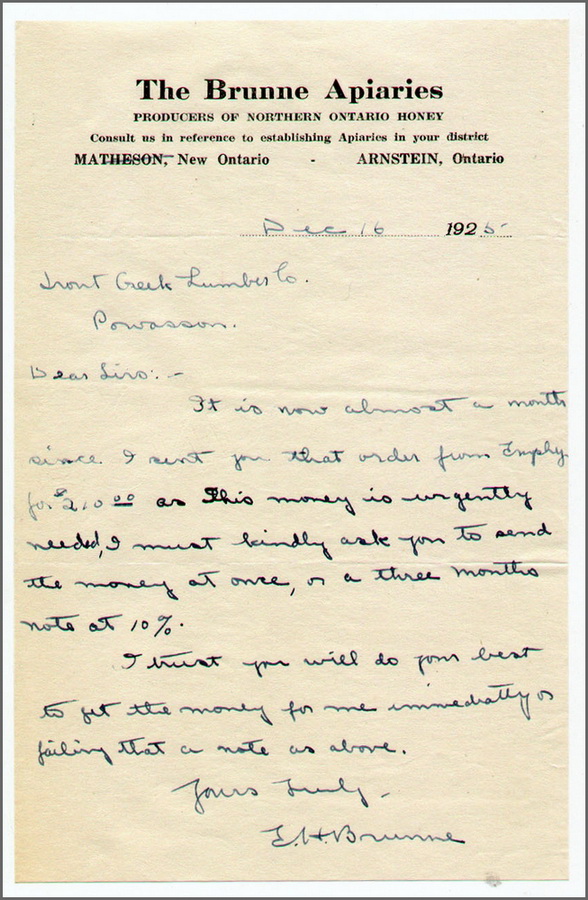 The Brunne Apiaries
PRODUCERS OF NORTHERN ONTARIO HONEY
Consult us in reference to establishing Apiaries in your district
MATHESON, New Ontario - ARNSTEIN, Ontario
Dec 16 1925
Trout Creek Lumber Co.
Powasson.
Dear Sirs: -
It is now almost a month
since I sent you that order from
for $210 00 as this money is urgently
needed, I must kindly ask you to send
the money at once, or a three months
note at 10%.
I trust you will do your best
to get the money for me immediatly or
failing that a note as above.
Yours Truly -
E.H. Brunne